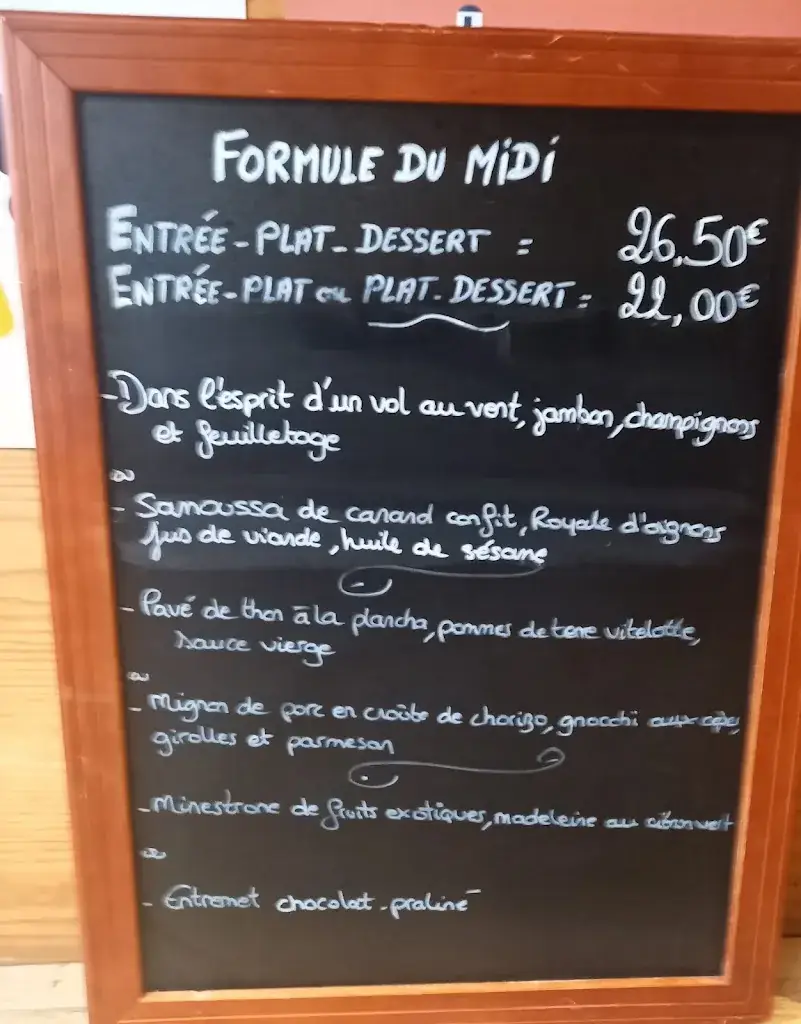 FORMULE DU MiDi
ENTRÉE-PLAT-DESSERT = 26,50€
ENTRÉE-PLAT ou PLAT-DESSERT = 22,00€
-Dans l'esprit d'un vol au vent, jambon, champignons
et feuilletage
ou
- Samoussa de canard confit, Royale d'oignons
jus de viande, huile de sésame
- Pavé de thon à la plancha, pommes de terre vitelotte,
sauce vierge
ou
- Mignon de porc en croûte de chorizo, gnocchi aux cèpes,
girolles et parmesan
-Minestrone de fruits exotiques, madeleine au citron vert
ou
- Entremet chocolat-praliné